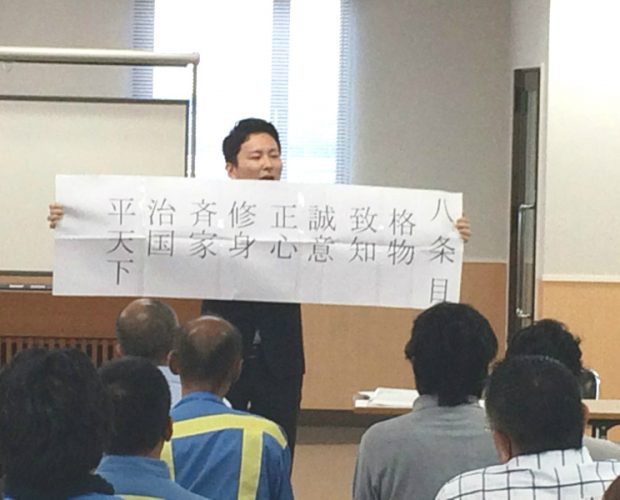 八条目
格物
致知
誠意
正心
修身
斉家
治国
平天下